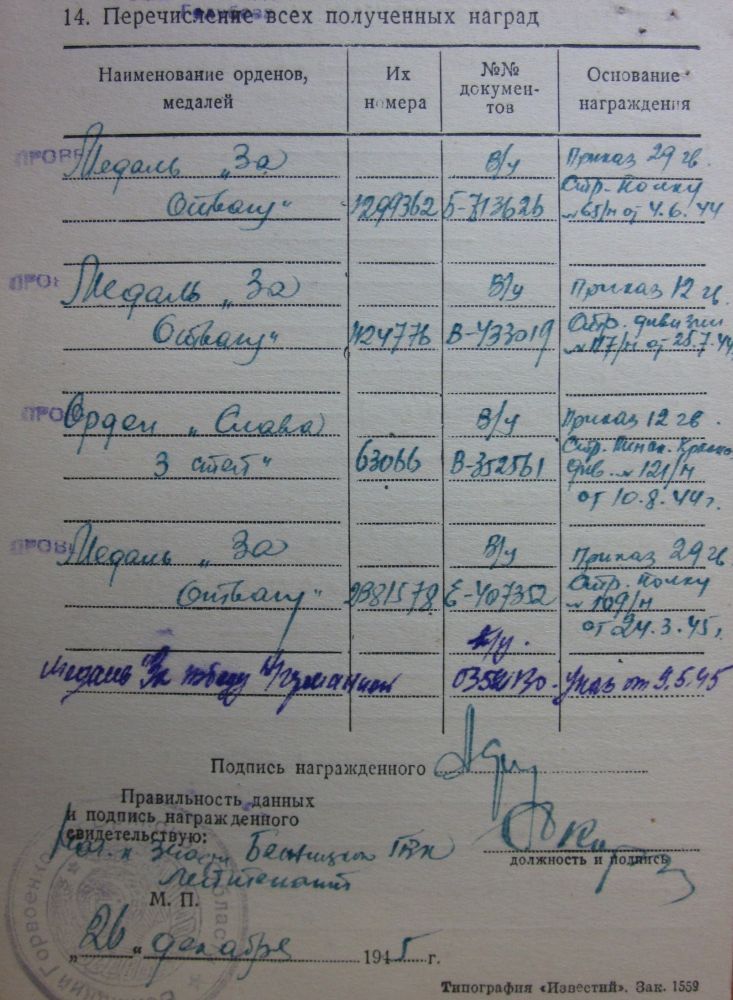 14. Перечисление всех полученных наград
Наименование орденов, медалей
Их номера
№№ документов
Основание награждения
ПРОВЕ
Медаль „За
В/у
Приказ 29 гв.
Отвагу"
1299362
Б-713626
Стр. полку
№ 65/н от 4.6.44
ПРОВ
Медаль „За
В/у
Приказ 12 гв.
Отвагу"
424776
В-433019
Стр. дивизии
№ 117/н от 25.7.44
ПРОВ
Орден „Слава
В/у
Приказ 12 гв.
3 степ"
63066
В-352561
Стр. Пинск. Красн.
див. № 121/н
от 10.8.44 г.
ПРОВЕ
Медаль „За
В/у
Приказ 29 гв.
Отвагу"
2381578
Е-407352
Стр. полку
№ 109/н
от 24.3.45 г.
в/у.
Медаль "За победу н/германией
Указ от 9.5.45
Подпись награжденного
Правильность данных
и подпись награжденного
свидетельствую:
Нач. 4 части ГВК
лейтенант
должность и подпись
М. П.
„26" декабря 1945 г.
Типография «Известий». Зак. 1559